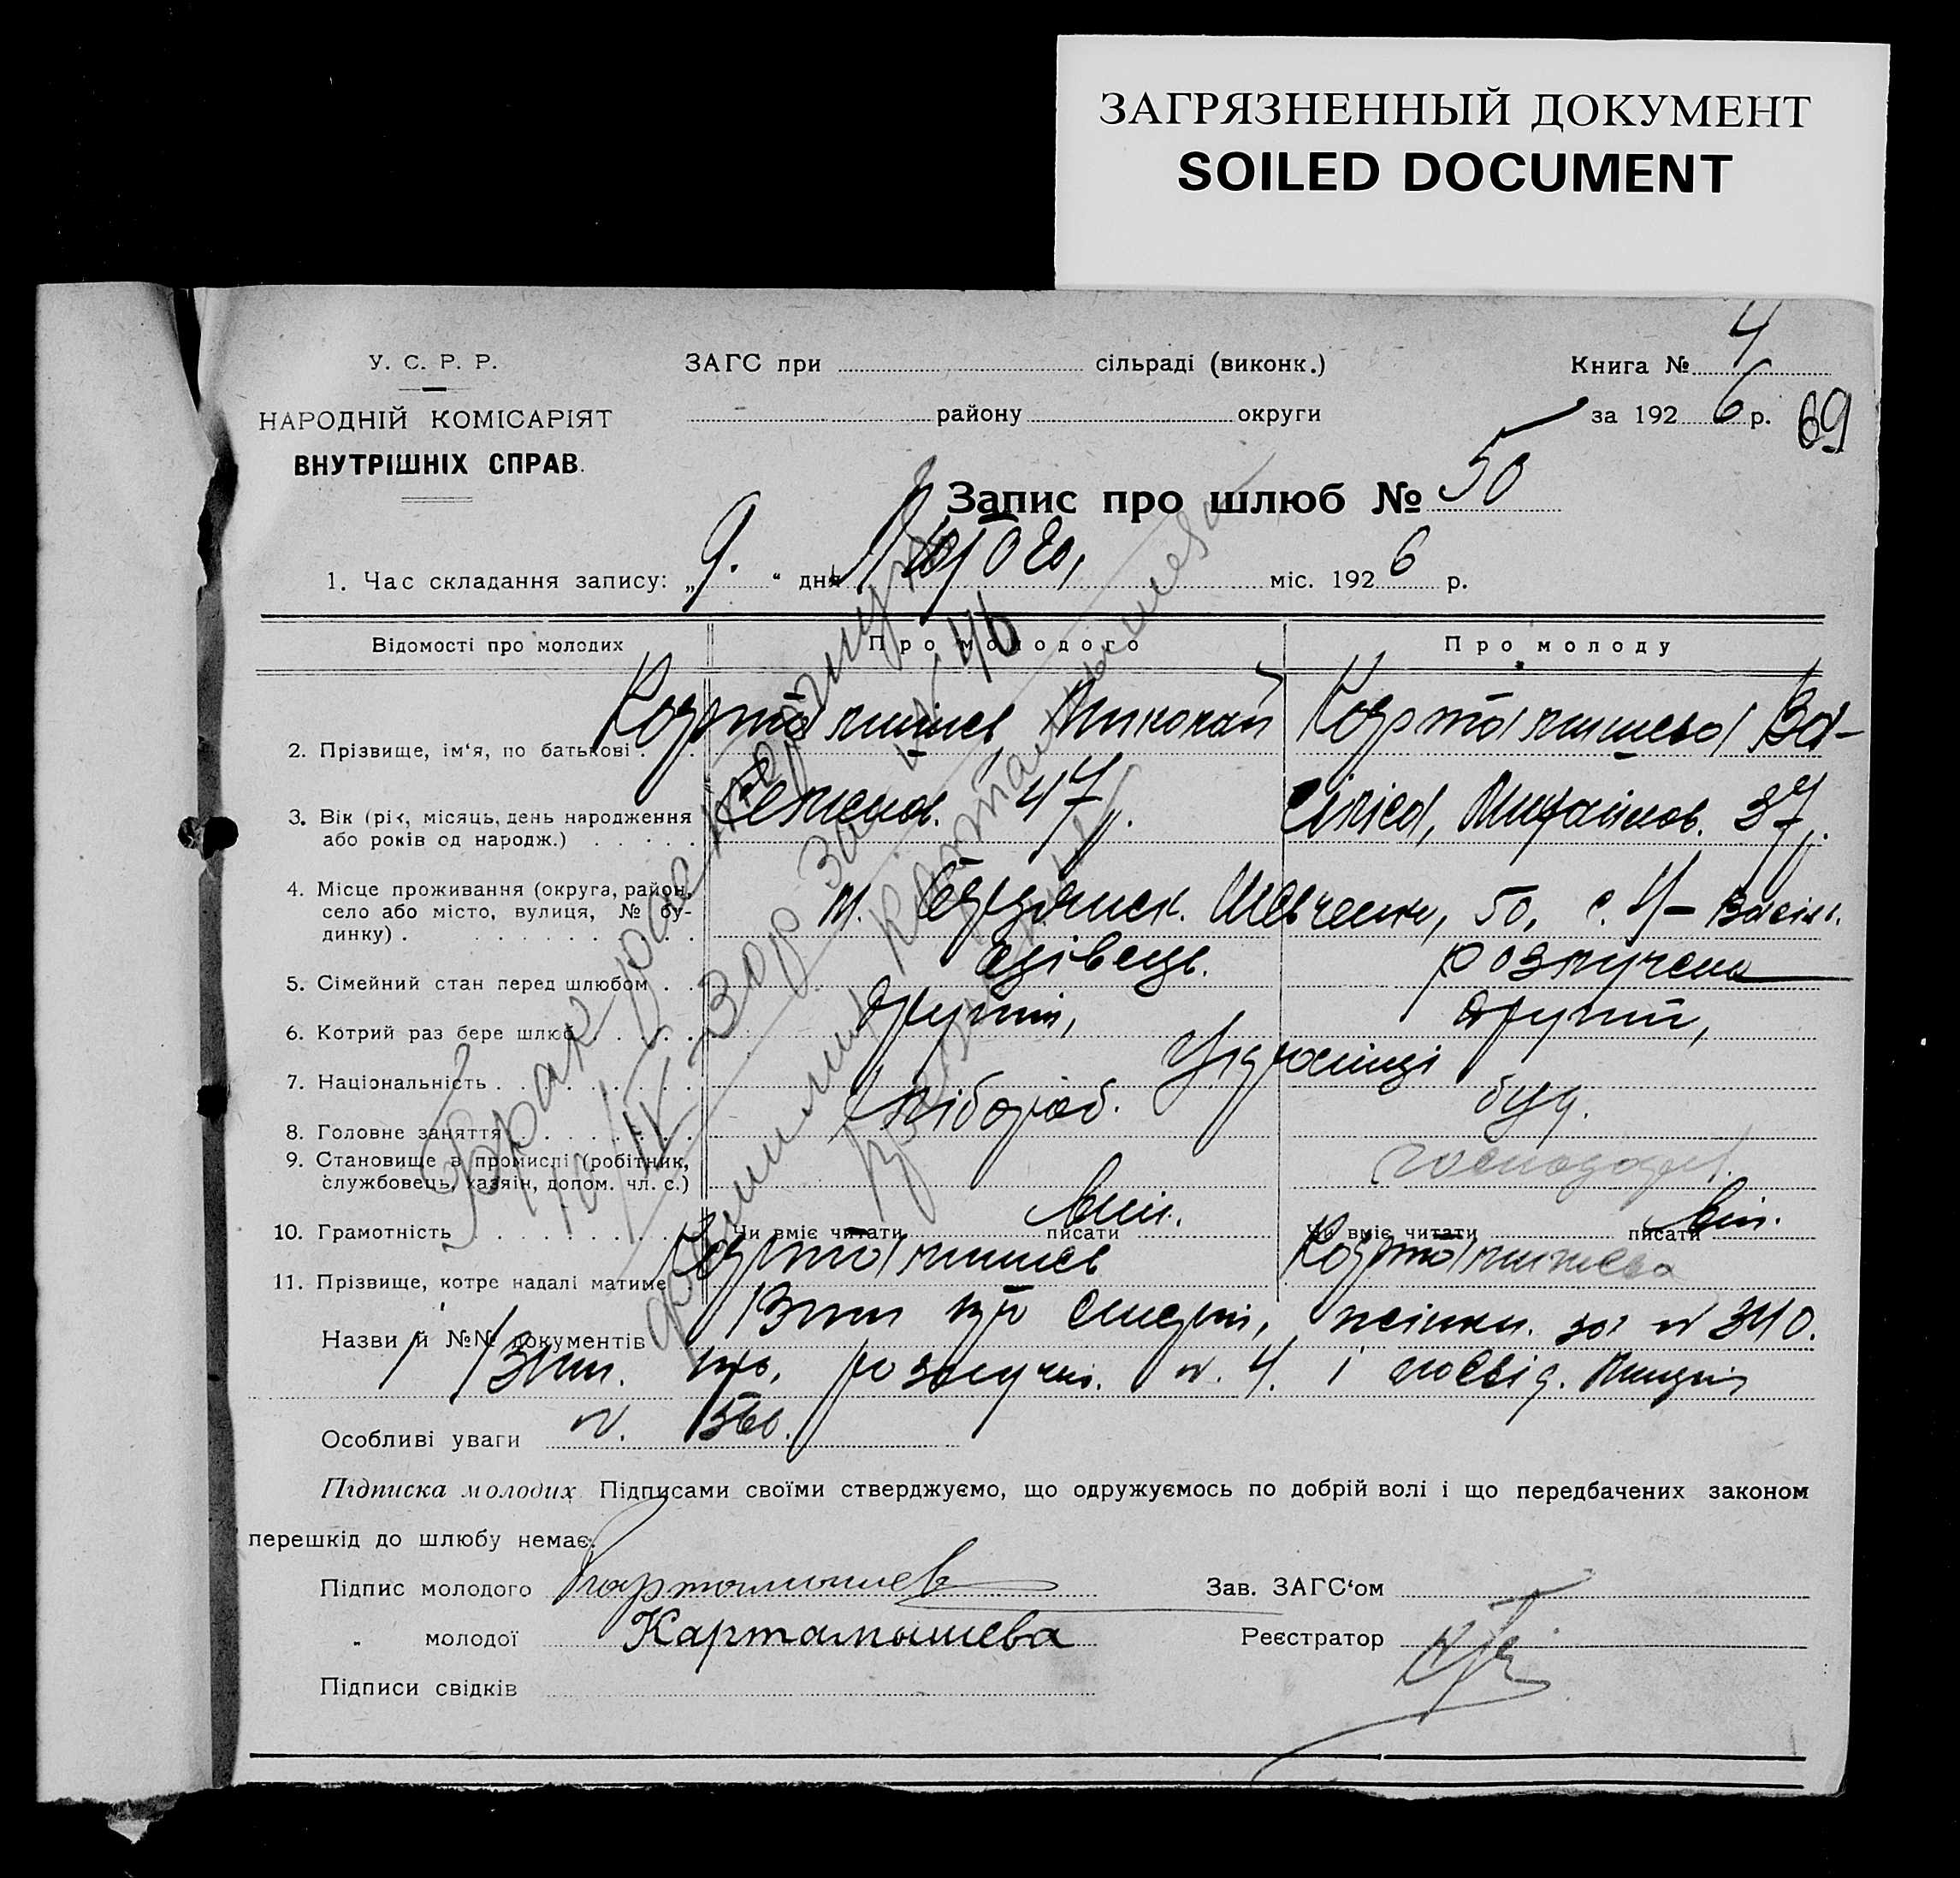 ЗАГРЯЗНЕННЫЙ ДОКУМЕНТ
SOILED DOCUMENT
У. С. Р. Р.
НАРОДНІЙ КОМІСАРІЯТ
ВНУТРІШНІХ СПРАВ.
ЗАГС при сільраді (виконк.)
району округи
Книга № 4
за 192 6 р.
69
Запис про шлюб № 50
1. Час складання запису: „ 9. “ дня Лютого, міс. 192 6 р.
Відомості про молодих Про молодого Про молоду
2. Прізвище, ім‘я, по батькові . Картамишев Николай Картамишева Ва-
3. Вік (рік, місяць, день народження Семенов. 47 р. силіса, Михайлов. 37 р.
або років од народж.) . . . . .
4. Місце проживання (округа, район, м. Бердянськ. Шевченк, 50, с. Н-Васил.
село або місто, вулиця, № бу-
динку) .
5. Сімейний стан перед шлюбом . . вдівець. розлучена
6. Котрий раз бере шлюб . . . . . другий, другий,
7. Національність . . . . . . . Українці
8. Головне заняття . . . . . . . хлібороб. буд.
9. Становище в промислі (робітник, господар.
службовець, хазяїн, допом. чл. с.)
10. Грамотність . . . . . . . . Чи вміє читати писати вміє. Чи вміє читати писати вміє.
11. Прізвище, котре надалі матиме Картамишев Картамишева
Назви й №№ документів Вип про смерть, жінки. за № 340.
Вип. про. розлучен. № 4. і посвід. Лицьов
№. 560.
Особливі уваги
Брак расторгнут
10/IX-30р за № 46
фамилии Картамышевы
Підписка молодих. Підписами своїми стверджуємо, що одружуємось по добрій волі і що передбачених законом
перешкід до шлюбу немає.
Підпис молодого Картамышев Зав. ЗАГС‘ом
„ молодої Картамышева Реєстратор
Підписи свідків